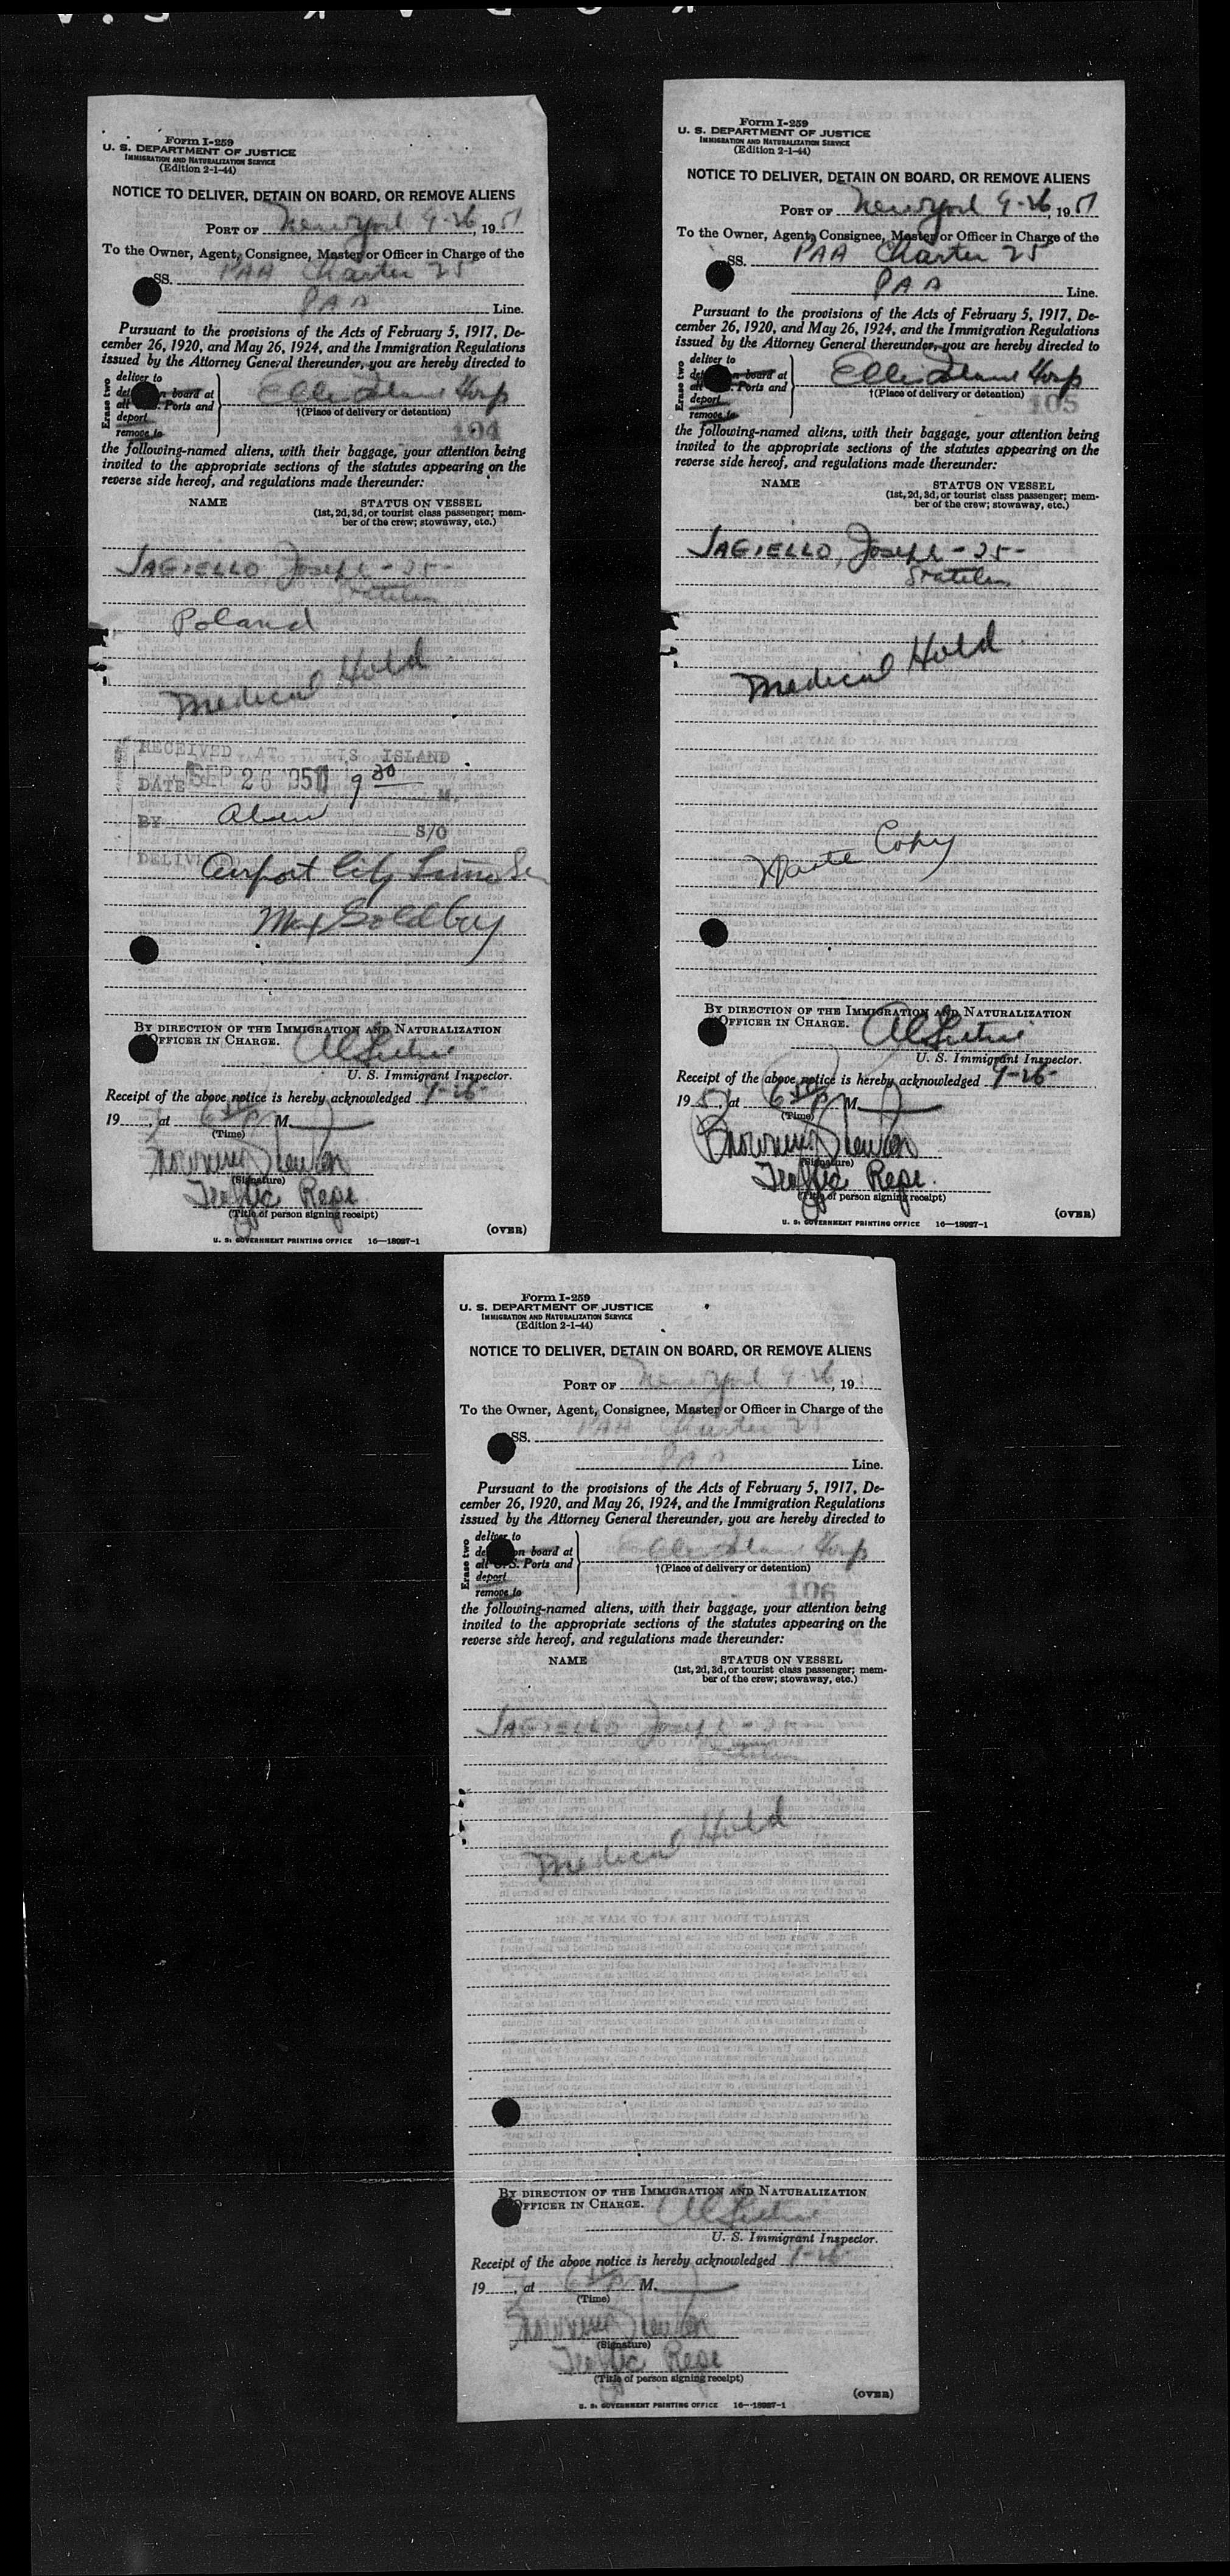 Form I-259
U. S. DEPARTMENT OF JUSTICE
IMMIGRATION AND NATURALIZATION SERVICE
(Edition 2-1-44)
NOTICE TO DELIVER, DETAIN ON BOARD, OR REMOVE ALIENS
PORT OF New York 9-26, 1951
To the Owner, Agent, Consignee, Master or Officer in Charge of the
SS. PAA Charter 25
PAA Line.
Pursuant to the provisions of the Acts of February 5, 1917, De-
cember 26, 1920, and May 26, 1924, and the Immigration Regulations
issued by the Attorney General thereunder, you are hereby directed to
Erase two
deliver to
on board at
all Ports and
deport
remove to
Ellis Island Hosp
†(Place of delivery or detention)
104
the following-named aliens, with their baggage, your attention being
invited to the appropriate sections of the statutes appearing on the
reverse side hereof, and regulations made thereunder:
NAME STATUS ON VESSEL
(1st, 2d, 3d, or tourist class passenger; mem-
ber of the crew; stowaway, etc.)
JAGIELLO, Joseph - 25 -
Poland
Medical Hold
RECEIVED AT ELLIS ISLAND
DATE SEP 26 1951 9 30 M.
BY S/O
Airport City
Max
BY DIRECTION OF THE IMMIGRATION AND NATURALIZATION
OFFICER IN CHARGE.
U. S. Immigrant Inspector.
Receipt of the above notice is hereby acknowledged 9-26-
19 , at M.
(Time)
(Signature)
Traffic Repr.
(Title of person signing receipt)
(OVER)
U. S. GOVERNMENT PRINTING OFFICE 16—18987-1
Form I-259
U. S. DEPARTMENT OF JUSTICE
IMMIGRATION AND NATURALIZATION SERVICE
(Edition 2-1-44)
NOTICE TO DELIVER, DETAIN ON BOARD, OR REMOVE ALIENS
PORT OF New York 9-26, 1951
To the Owner, Agent, Consignee, Master or Officer in Charge of the
SS. PAA Charter 25
PAA Line.
Pursuant to the provisions of the Acts of February 5, 1917, De-
cember 26, 1920, and May 26, 1924, and the Immigration Regulations
issued by the Attorney General thereunder, you are hereby directed to
Erase two
deliver to
on board at
all Ports and
deport
remove to
Ellis Island Hosp
†(Place of delivery or detention)
105
the following-named aliens, with their baggage, your attention being
invited to the appropriate sections of the statutes appearing on the
reverse side hereof, and regulations made thereunder:
NAME STATUS ON VESSEL
(1st, 2d, 3d, or tourist class passenger; mem-
ber of the crew; stowaway, etc.)
JAGIELLO, Joseph - 25 -
Medical Hold
Copy
BY DIRECTION OF THE IMMIGRATION AND NATURALIZATION
OFFICER IN CHARGE.
U. S. Immigrant Inspector.
Receipt of the above notice is hereby acknowledged 9-26-
1951, at M.
(Time)
(Signature)
Traffic Repr.
(Title of person signing receipt)
(OVER)
U. S. GOVERNMENT PRINTING OFFICE 16—18987-1
Form I-259
U. S. DEPARTMENT OF JUSTICE
IMMIGRATION AND NATURALIZATION SERVICE
(Edition 2-1-44)
NOTICE TO DELIVER, DETAIN ON BOARD, OR REMOVE ALIENS
PORT OF New York 9-26, 19
To the Owner, Agent, Consignee, Master or Officer in Charge of the
SS. PAA Charter 25
PAA Line.
Pursuant to the provisions of the Acts of February 5, 1917, De-
cember 26, 1920, and May 26, 1924, and the Immigration Regulations
issued by the Attorney General thereunder, you are hereby directed to
Erase two
deliver to
on board at
all U. S. Ports and
deport
remove to
Ellis Island Hosp
†(Place of delivery or detention)
106
the following-named aliens, with their baggage, your attention being
invited to the appropriate sections of the statutes appearing on the
reverse side hereof, and regulations made thereunder:
NAME STATUS ON VESSEL
(1st, 2d, 3d, or tourist class passenger; mem-
ber of the crew; stowaway, etc.)
JAGIELLO Joseph - 25 -
Medical Hold
BY DIRECTION OF THE IMMIGRATION AND NATURALIZATION
OFFICER IN CHARGE.
U. S. Immigrant Inspector.
Receipt of the above notice is hereby acknowledged 9-26-
19 , at M.
(Time)
(Signature)
Traffic Repr
(Title of person signing receipt)
(OVER)
U. S. GOVERNMENT PRINTING OFFICE 16—18987-1